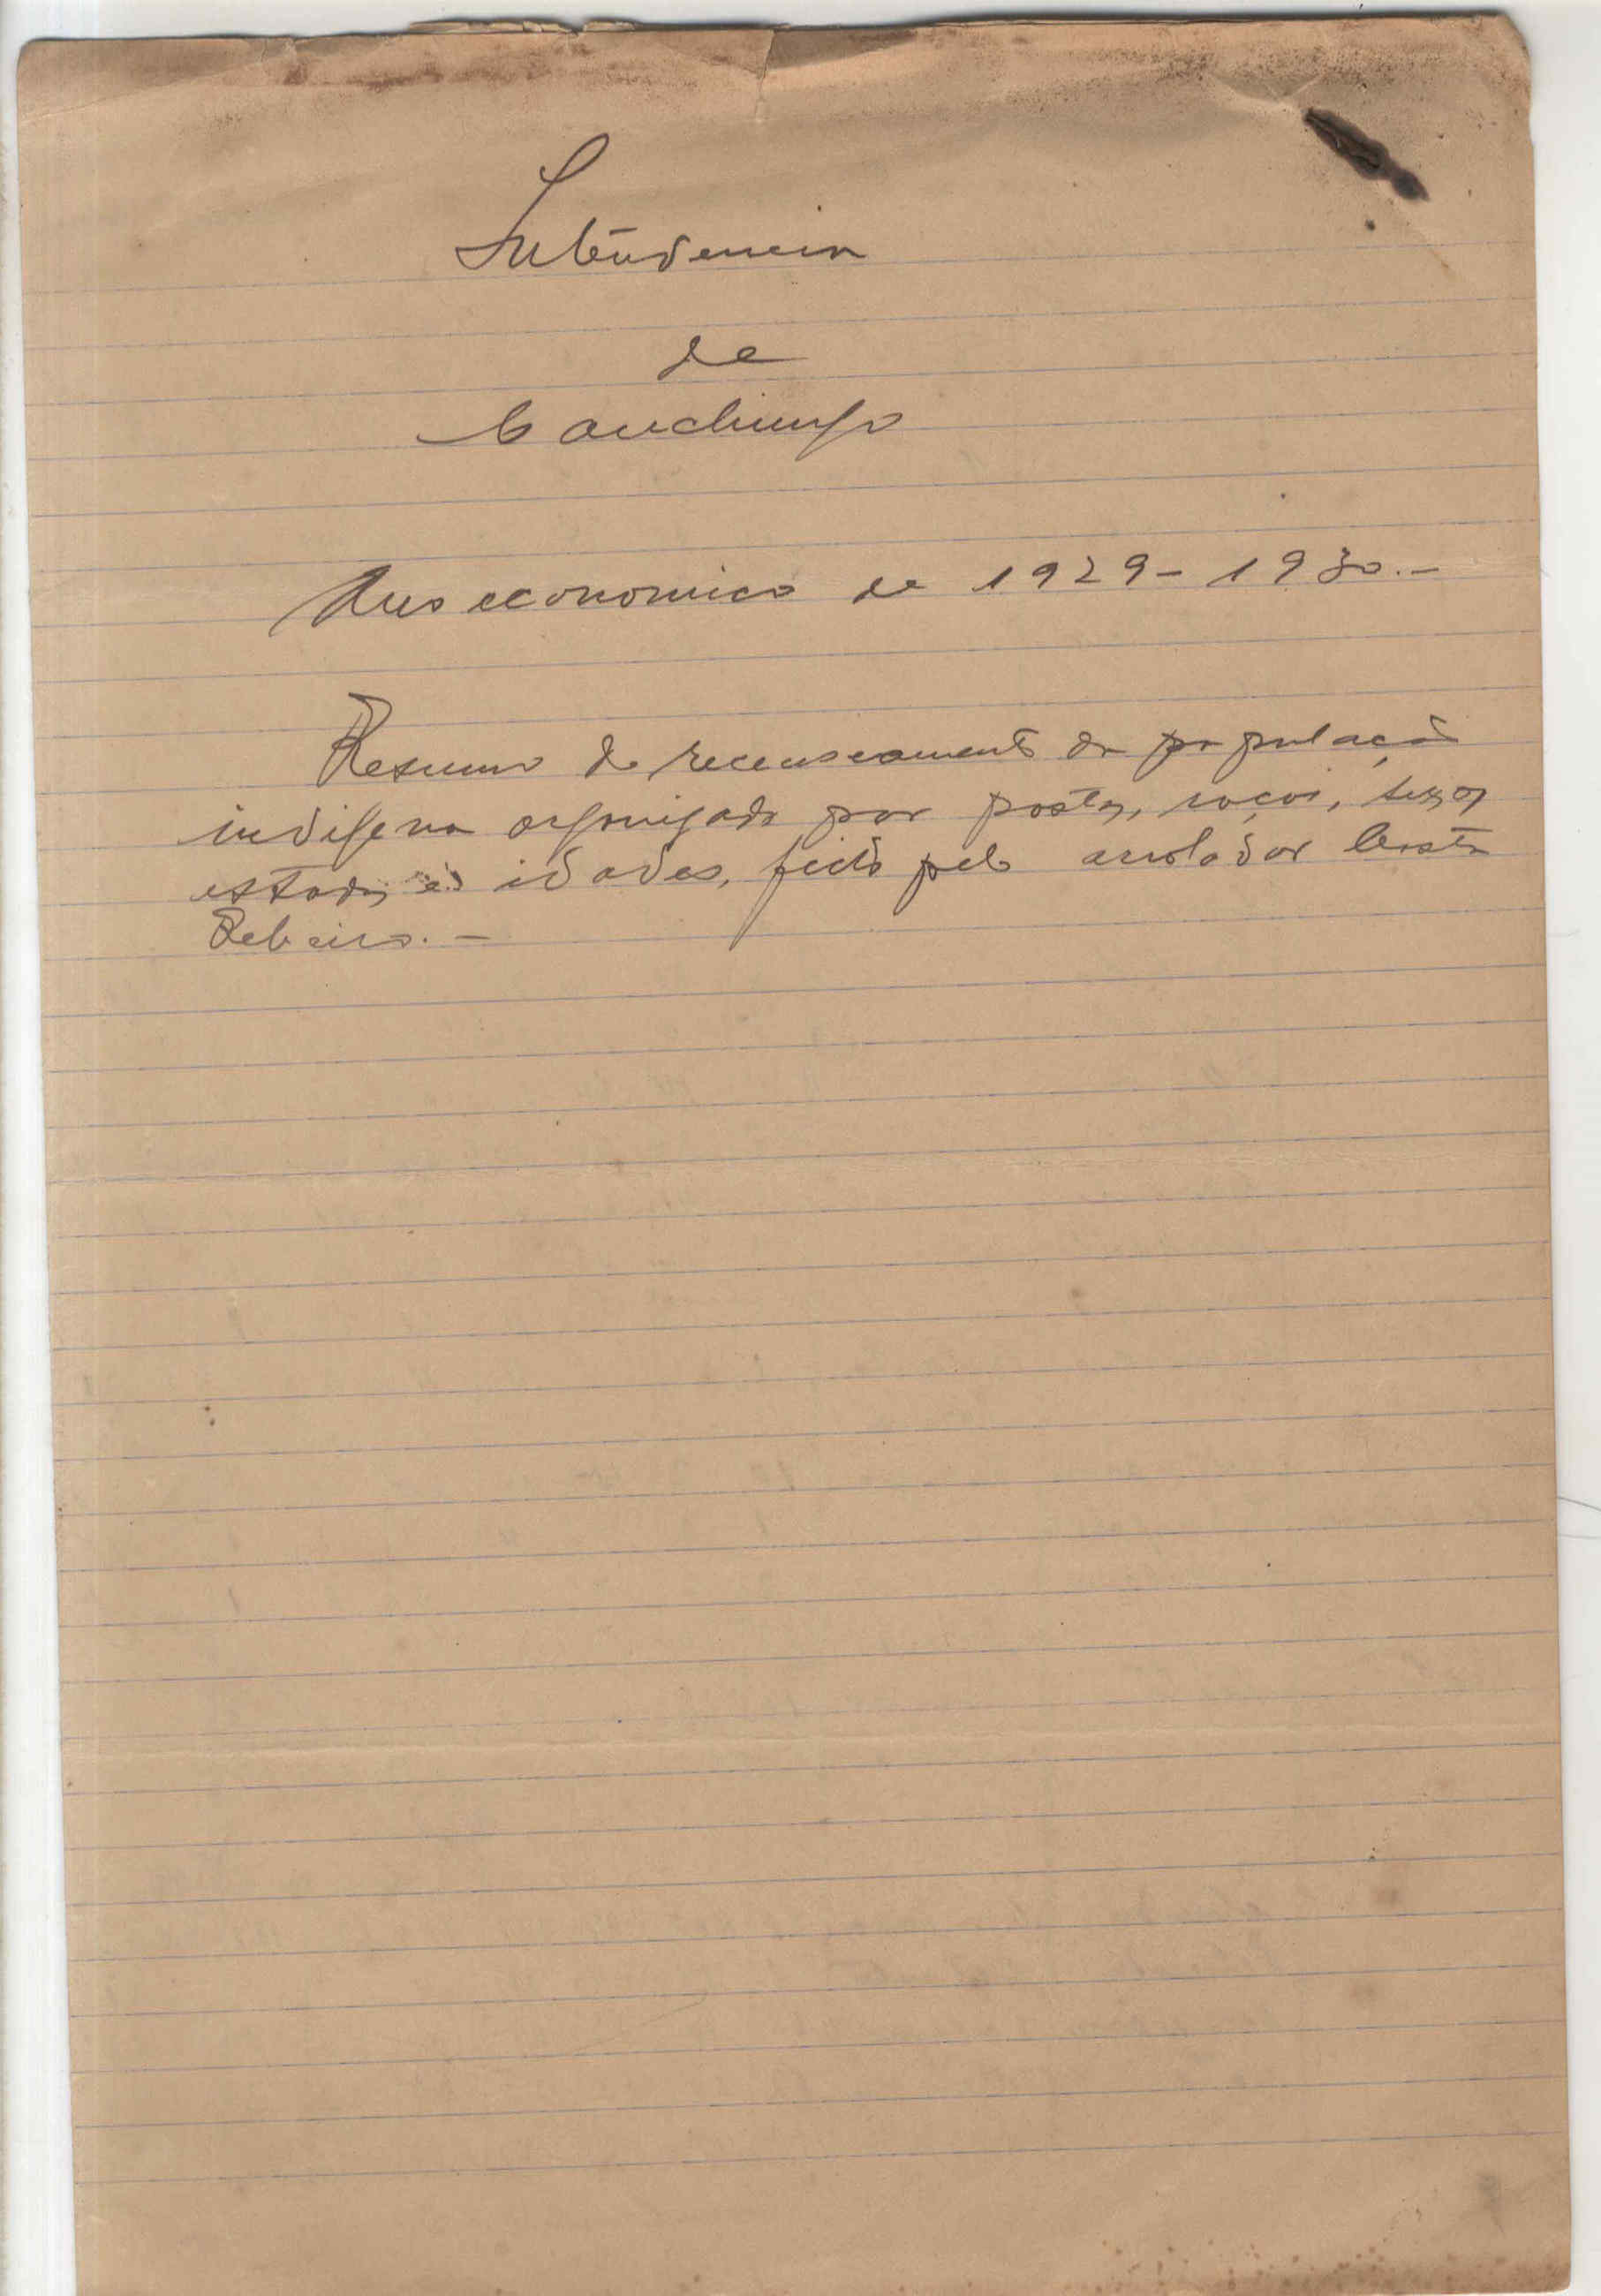 Intendencia
de
Canchungo
Ano economico de 1929-1930.-
Resumo do recenseamento da população
indigena organisado por postos, raças, sexos
estados e idades, feito pelo arrolador Costa
Rebeiro.-